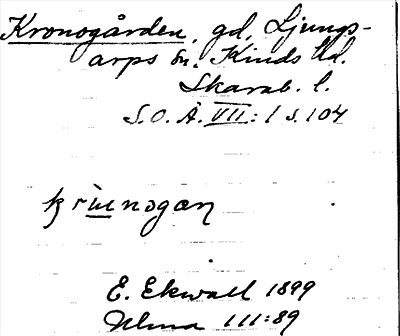 Kronogården, gd, Ljungs-
arps sn, Kinds hd.
Skarab. l.
S.O.Ä. VII: 1 s. 104
E. Ekwall 1899
111:89